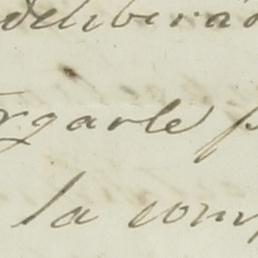 delibera
rgarle p
la com